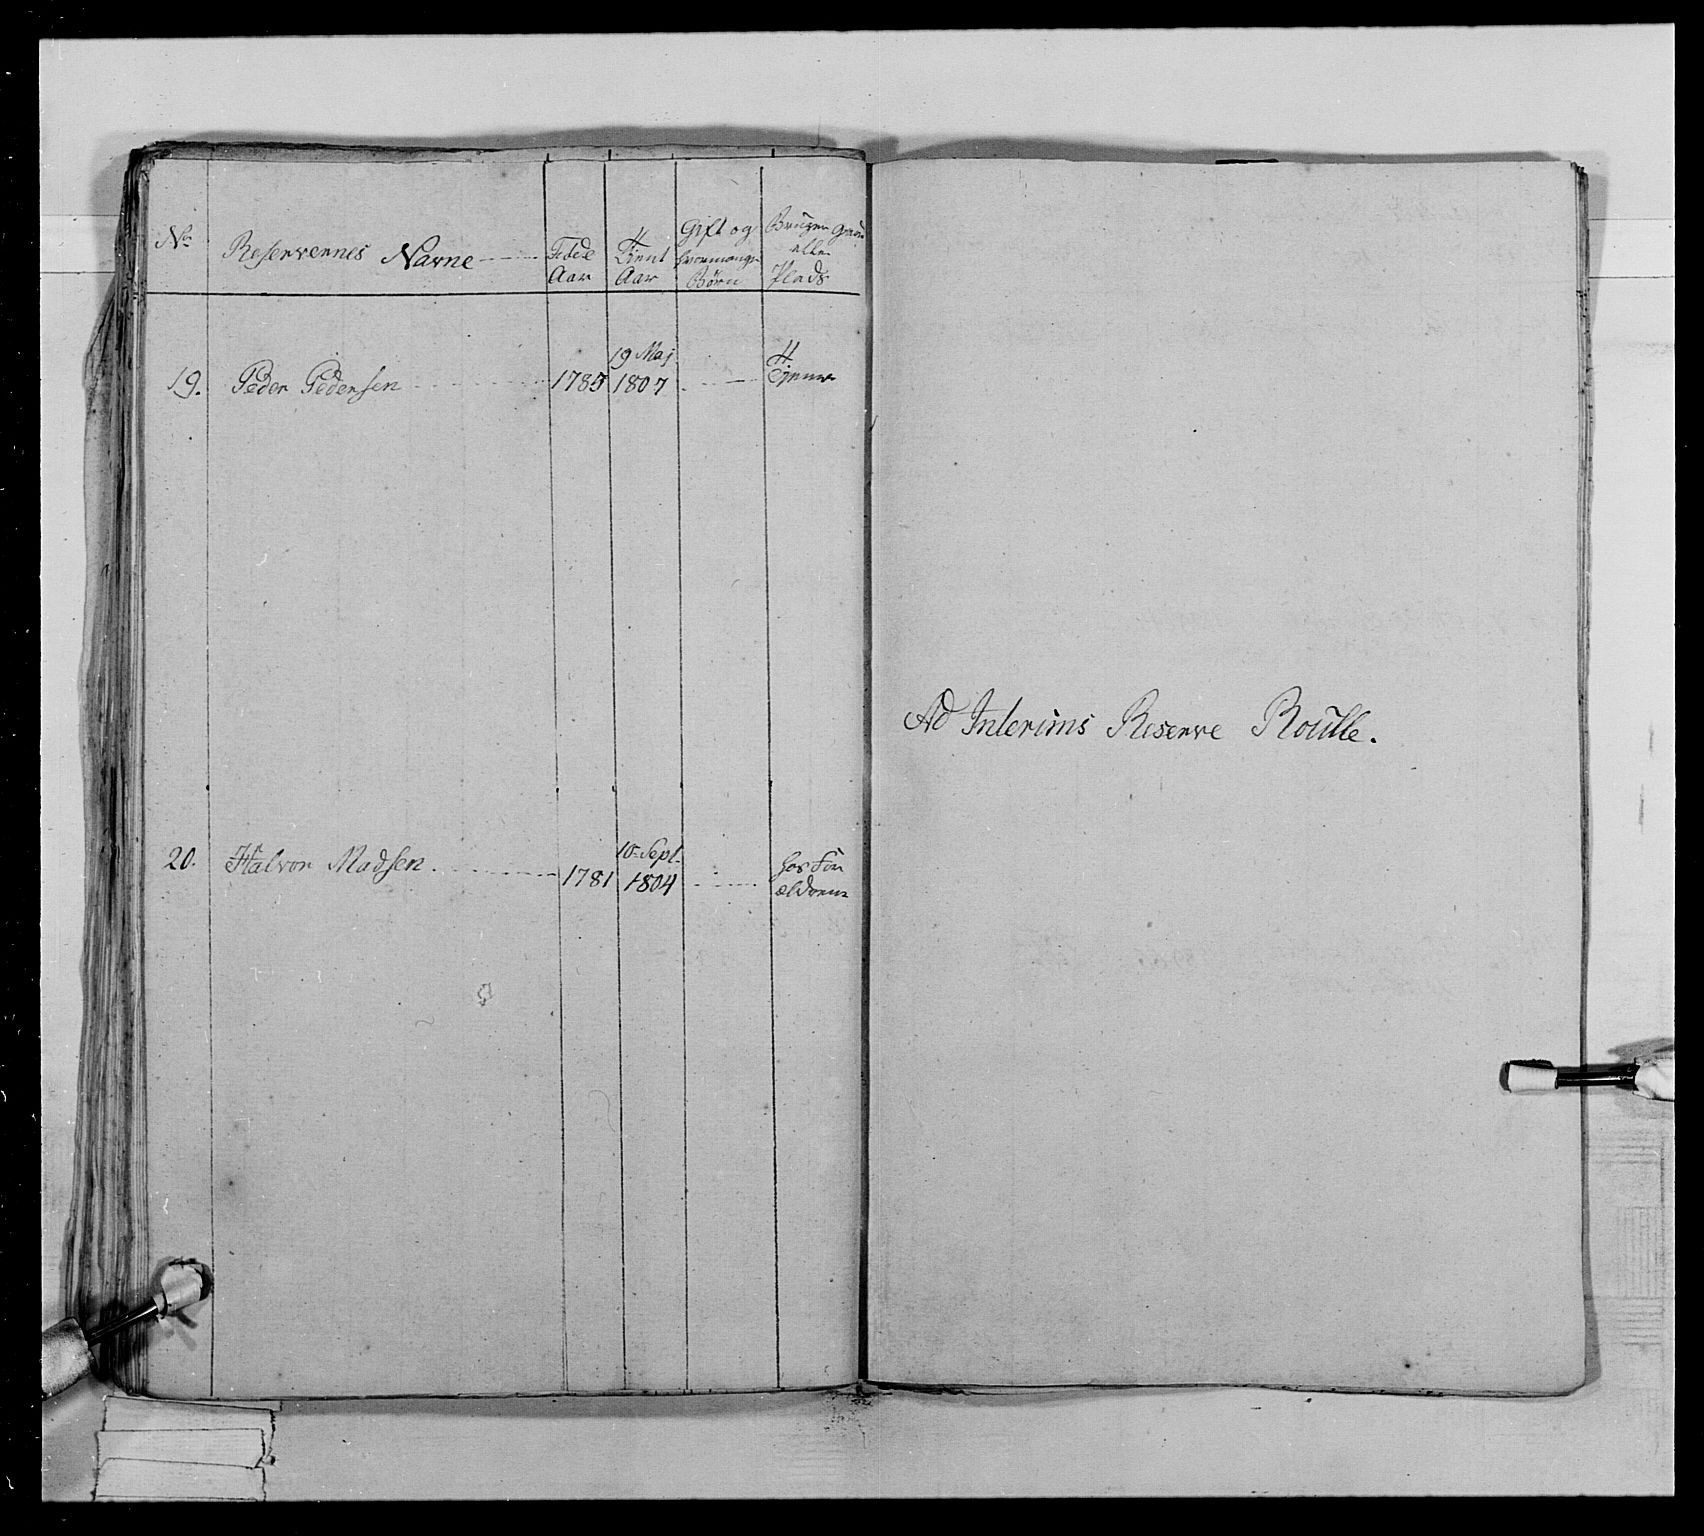 No Reservernes Navne Føde Aar Tient Aar Gift og hvormange Børn Bruger Gaard eller Plads
19. Peder Pedersen 1785 19 Maj 1807 Tjener
20. Halvor Madsen 1781 10 Sept. 1804 hos For ældrene
Ad Interims Reserve Roulle.